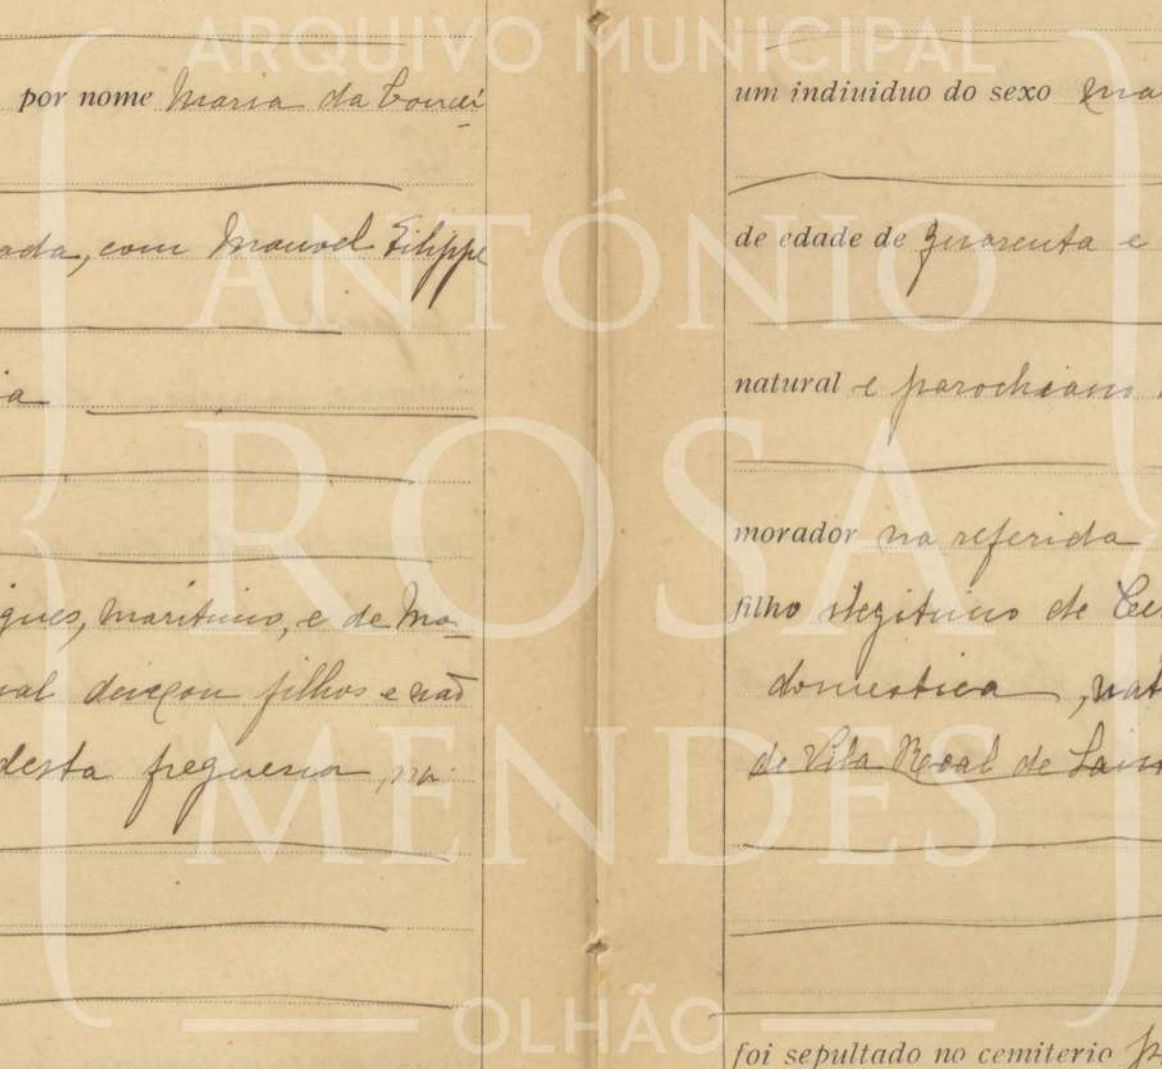 ARQUIVO MUNICIPAL
ANTÓNIO
ROSA
MENDES
OLHÃO
por nome Maria da Concei
ada, com Manoel Filippe
a
gues, maritimo, e de Ma
ual deixou filhos e não
desta freguesia, na
um indiuiduo do sexo ma
de edade de quarenta e
natural e parochiano
morador na referida
filho illegitimo de
domestica, nat
de Vila Real de
foi sepultado no cemiterio